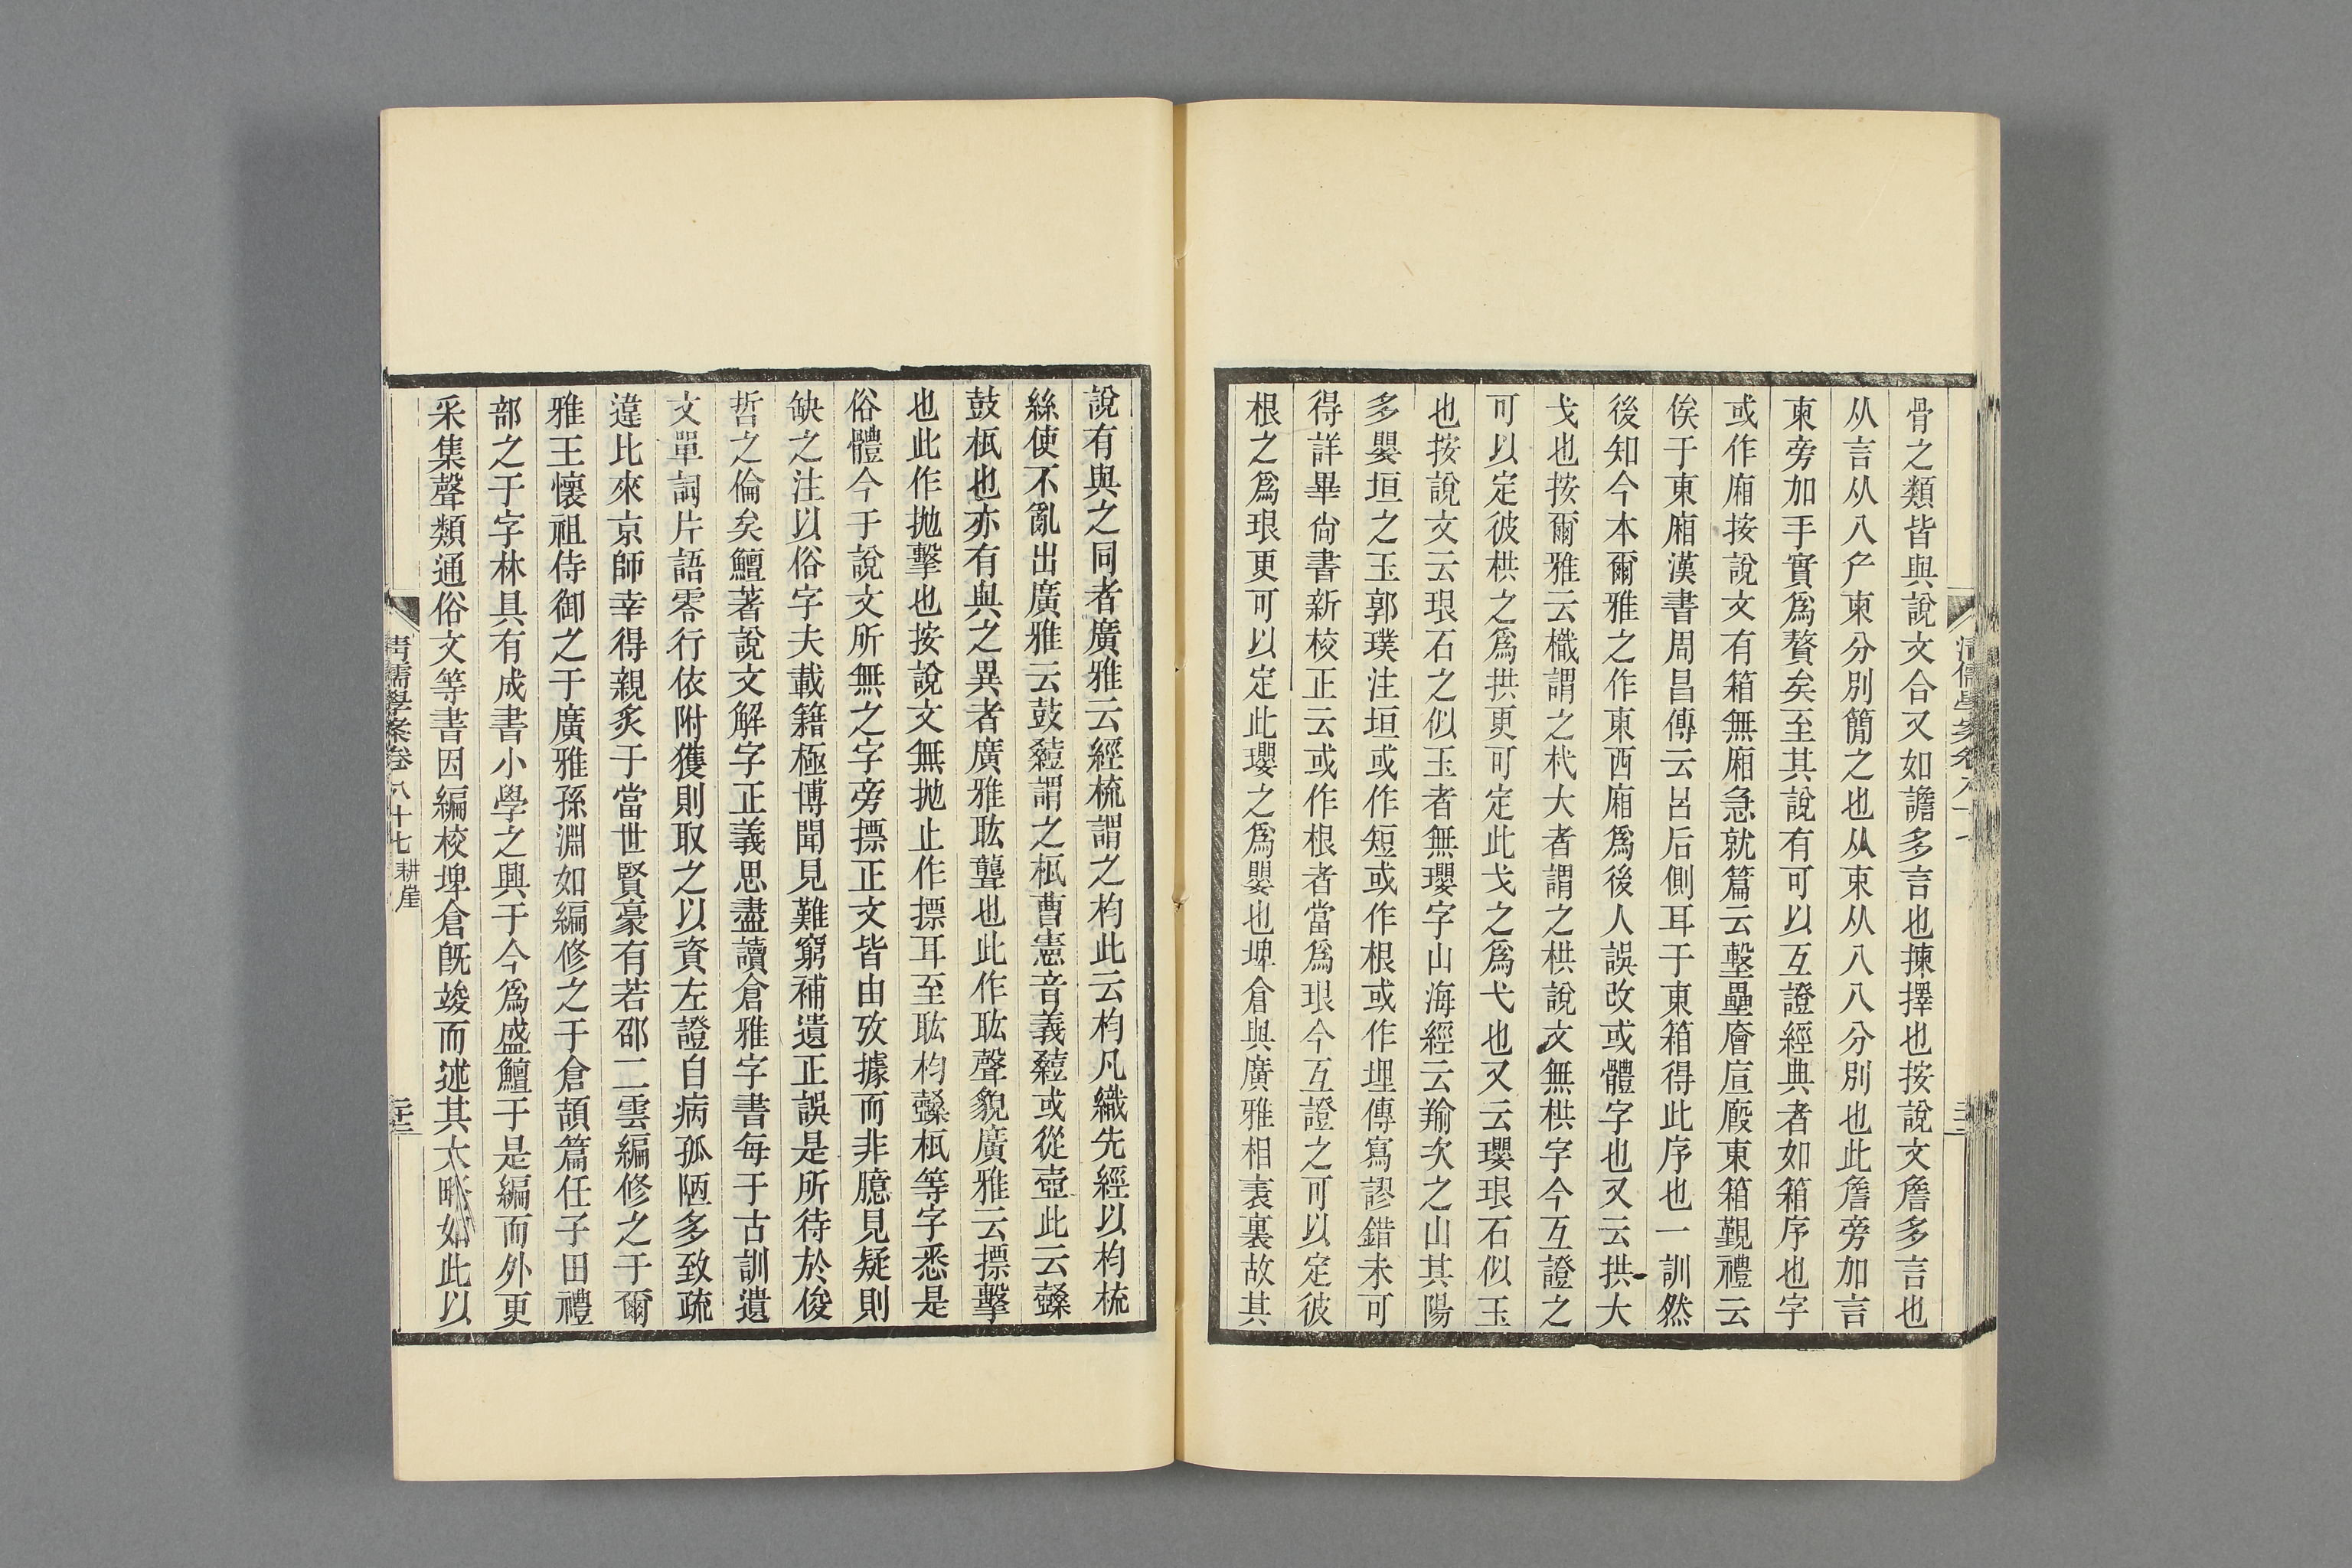 骨之類皆與說文合又如譫多言也揀擇也按說文詹多言也
从言从八产東分別簡之也从束从八八分別也此詹旁加言
東旁加手實爲贅矣至其說有可以互證經典者如箱序也字
或作廂按說文有箱無廂急就篇云墼壘廥庭廄東箱覲禮云
俟于東廂漢書周昌傳云呂后側耳于東箱得此序也一訓然
後知今本爾雅之作東西廂爲後人誤改或體字也又云拱大
戈也按爾雅云樴謂之杙大者謂之栱說文無栱字今互證之
可以定彼栱之爲拱更可定此戈之爲弋也又云瓔琅石似玉
也按說文云琅石之似玉者無瓔字山海經云羭次之山其陽
多嬰垣之玉郭璞注垣或作短或作根或作埋傳寫謬錯未可
得詳畢尙書新校正云或作根者當爲琅今互證之可以定彼
根之爲琅更可以定此瓔之爲嬰也埤倉與廣雅相表裏故其
說有與之同者廣雅云經梳謂之杓此云杓凡織先經以杓梳
絲使不亂出廣雅云鼓謂之柢曹憲音義或從壺此云
鼓柢也亦有與之異者廣雅耾聾也此作耾聲貌廣雅云摽擊
也此作抛擊也按說文無抛止作摽耳至耾杓柢等字悉是
俗體今于說文所無之字旁摽正文皆由攷據而非臆見疑則
缺之注以俗字夫載籍極博聞見難窮補遺正誤是所待於俊
哲之倫矣鱣著說文解字正義思盡讀倉雅字書每于古訓遺
文單詞片語零行依附獲則取之以資左證自病孤陋多致疏
違比來京師幸得親炙于當世賢豪有若邵二雲編修之于爾
雅王懷祖侍御之于廣雅孫淵如編修之于倉頡篇任子田禮
部之于字林具有成書小學之興于今爲盛鱣于是編而外更
采集聲類通俗文等書因編校埤倉旣竣而述其大略如此以
清儒學案卷八十七 耕崖